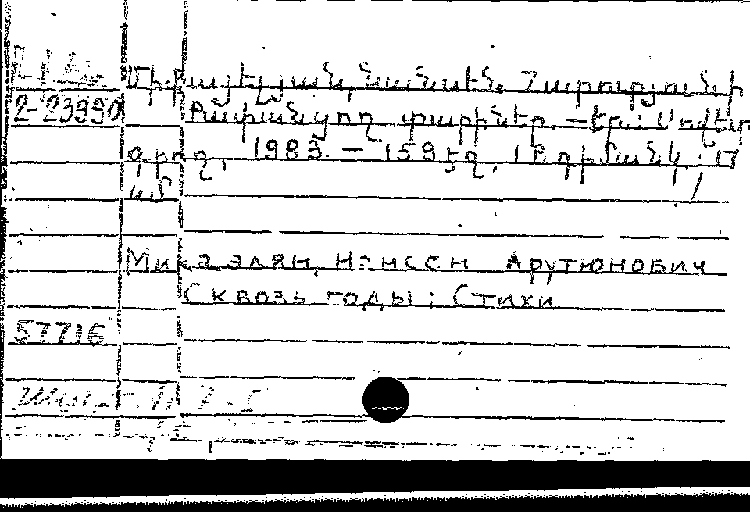 Միքայելյան, Նանսեն Հարությունի
2-23990 Թափանցող տարիներ. — Եր.: Սովետ.
գրող, 1983. — 159 էջ, 1 թ. դիմանկ.; 17
սմ
Микаэлян, Нансен Арутюнович
Сквозь годы : Стихи
57716